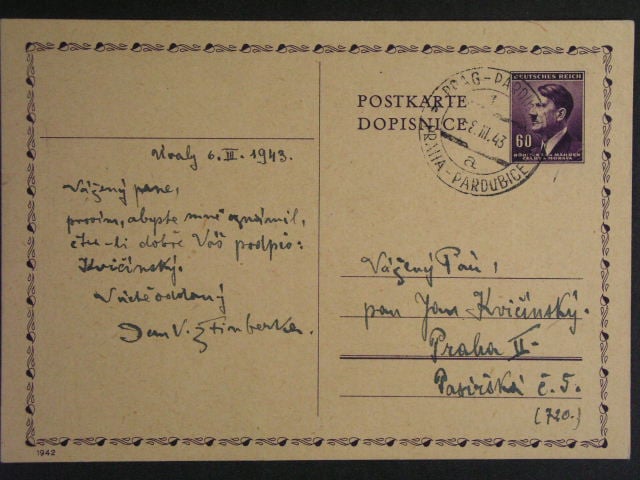 POSTKARTE
DOPISNICE
DEUTSCHES REICH
60
BÖHMEN UND MÄHREN
ČECHY A MORAVA
PRAG-PARDU
8.III.43
a
PRAHA-PARDUBICE
6. III. 1943.
Vážený pane,
prosím, abyste mně oznámil,
čtu-li dobře Váš podpis:
Kvičínský.
Vám oddaný
Jan V.
Vážený Pán,
pan Jan Kvičínský.
Praha II-
č. 5.
(720.)
1942